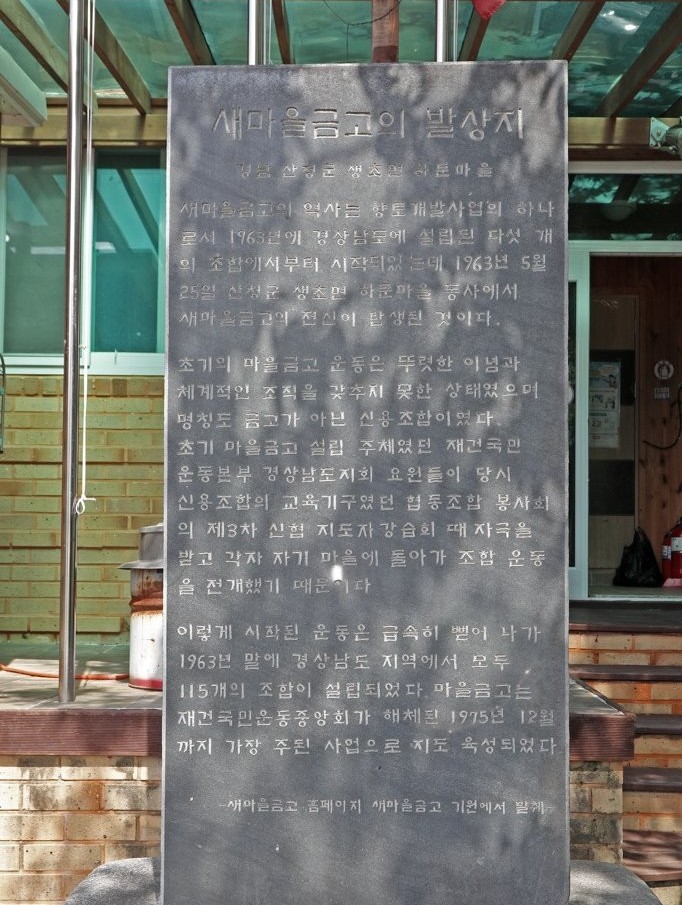 새마을금고의 발상지
경남 산청군 생초면 하둔마을
새마을금고의 역사는 향토개발사업의 하나
로서 1963년에 경상남도에 설립된 다섯 개
의 조합에서부터 시작되었는데 1963년 5월
25일 산청군 생초면 하둔마을 동사에서
새마을금고의 전신이 탄생된 것이다.
초기의 마을금고 운동은 뚜렷한 이념과
체계적인 조직을 갖추지 못한 상태였으며
명칭도 금고가 아닌 신용조합이였다.
초기 마을금고 설립 주체였던 재건국민
운동본부 경상남도지회 요원들이 당시
신용조합의 교육기구였던 협동조합 봉사회
의 제3차 신협 지도자강습회 때 자극을
받고 각자 자기 마을에 돌아가 조합 운동
을 전개했기 때문이다
이렇게 시작된 운동은 급속히 뻗어 나가
1963년 말에 경상남도 지역에서 모두
115개의 조합이 설립되었다. 마을금고는
재건국민운동중앙회가 해체된 1975년 12월
까지 가장 주된 사업으로 지도 육성되었다
-새마을금고 홈페이지 새마을금고 기원에서 발췌-